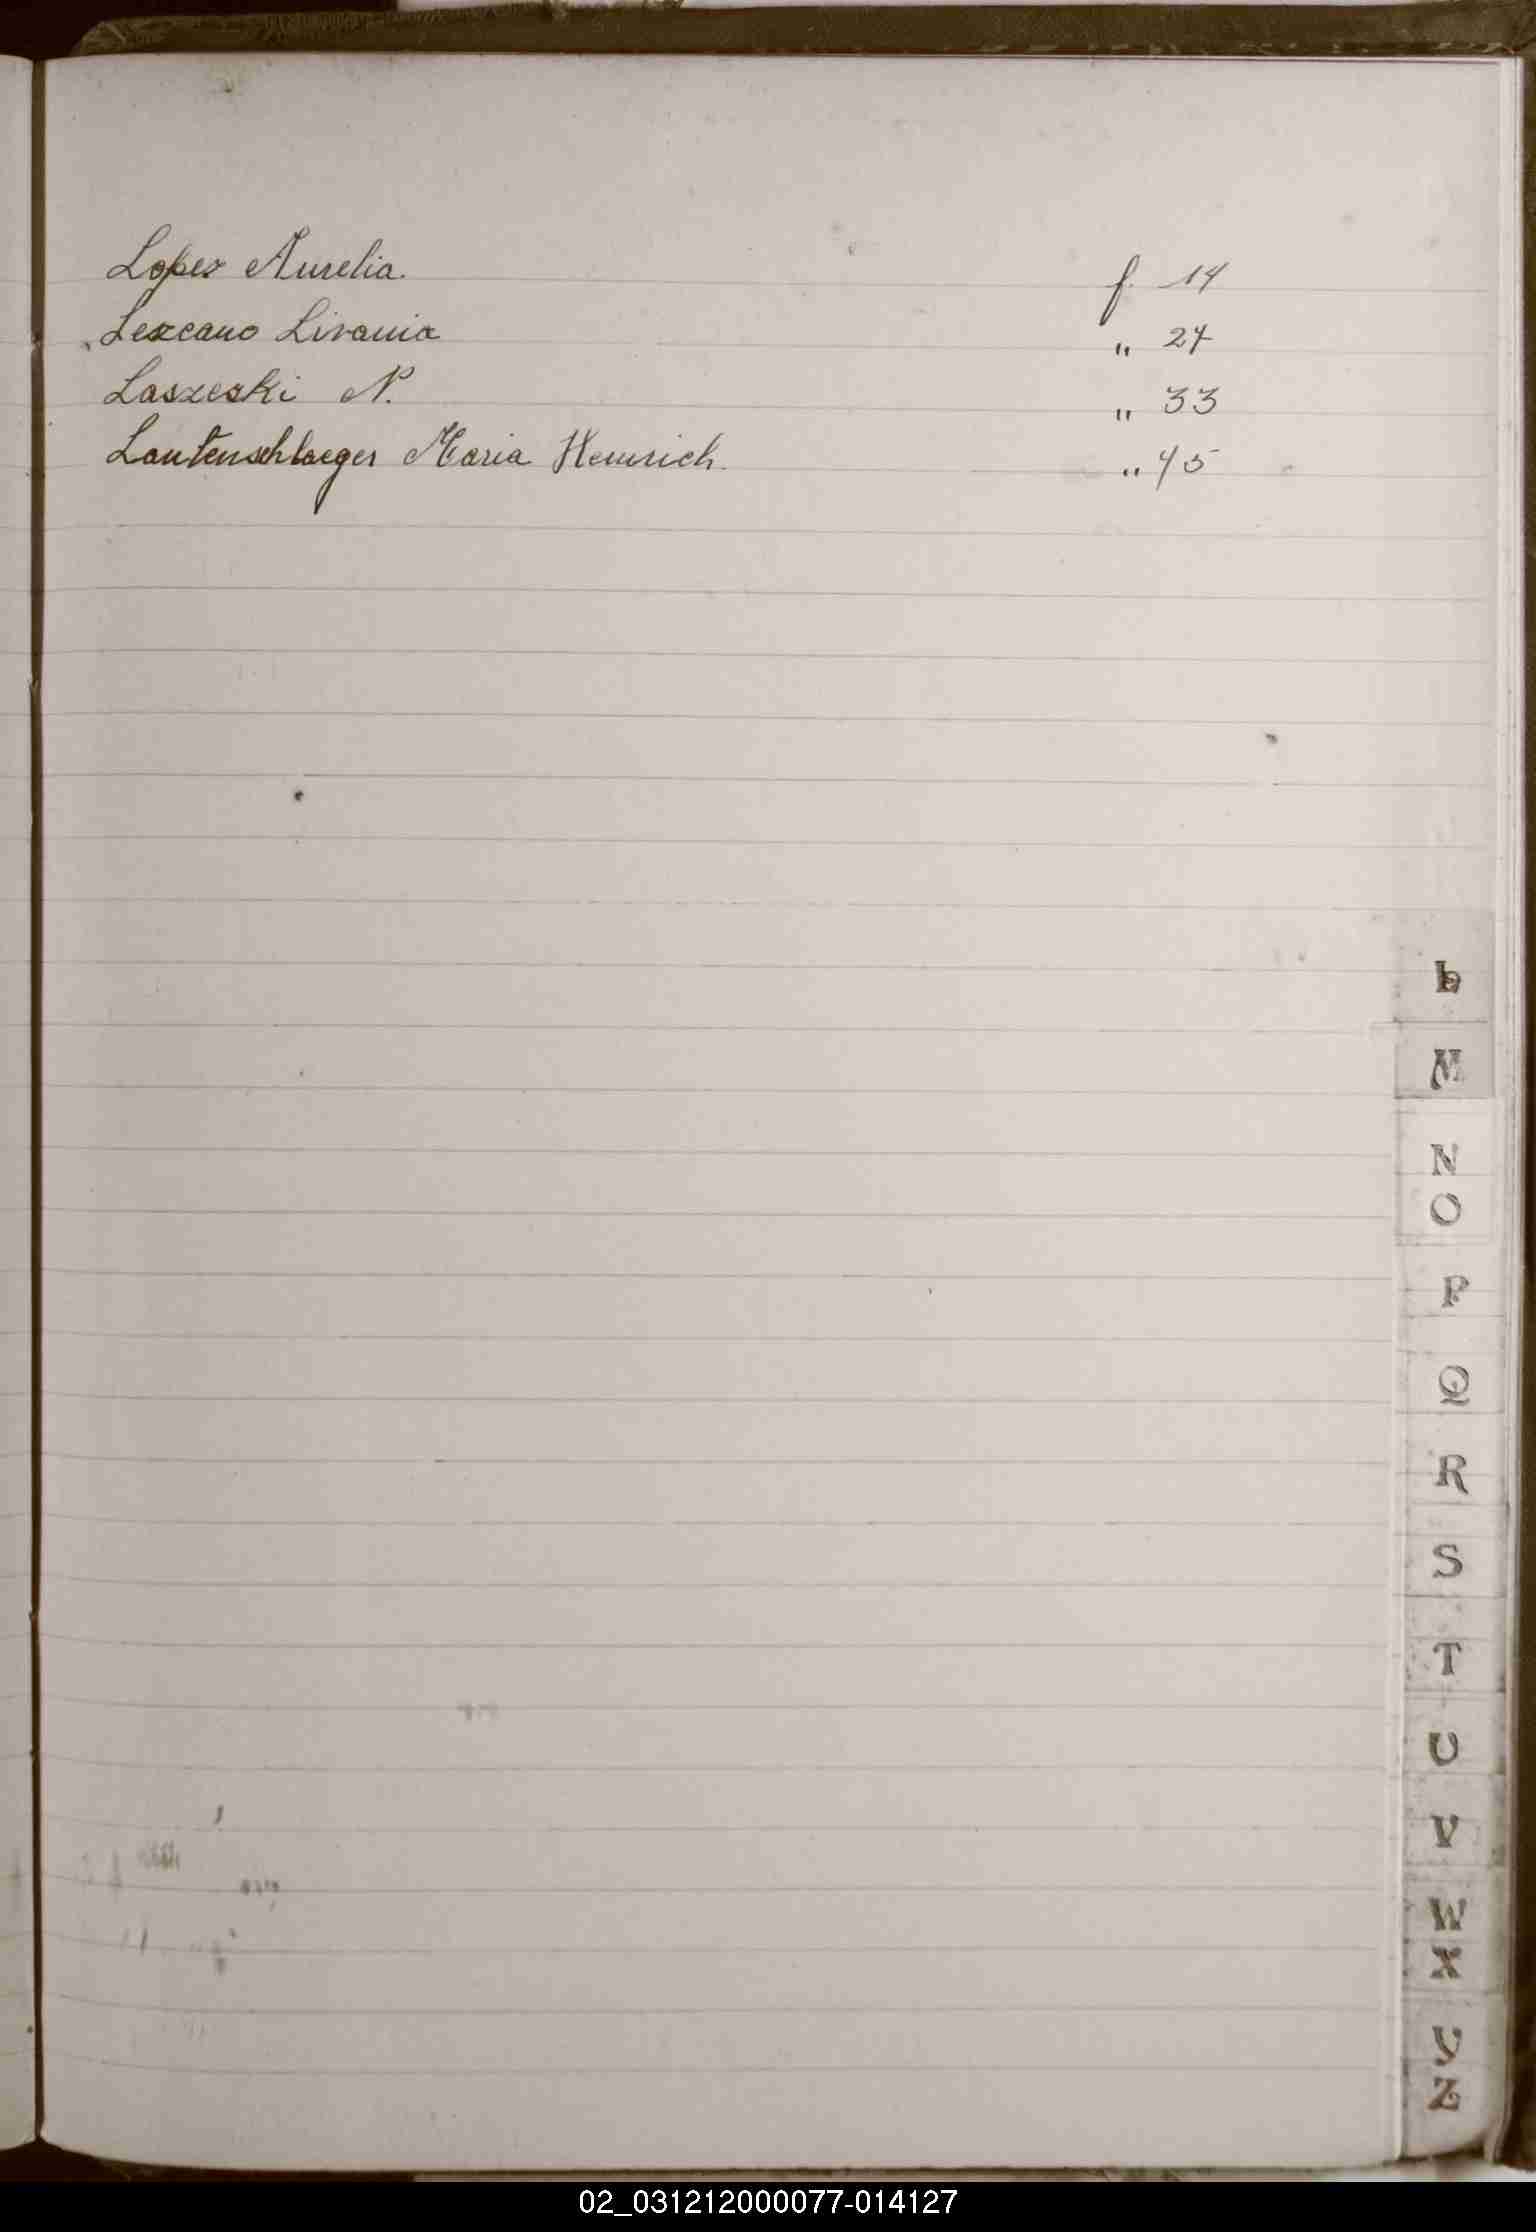 Lopez Aurelia. f. 14
Lezcano Livania „ 27
Laszeski N. „ 33
Lautenschlaeger Maria Heinrich. „ 45
L
M
N
O
P
Q
R
S
T
U
V
W
X
Y
Z
02_031212000077-014127